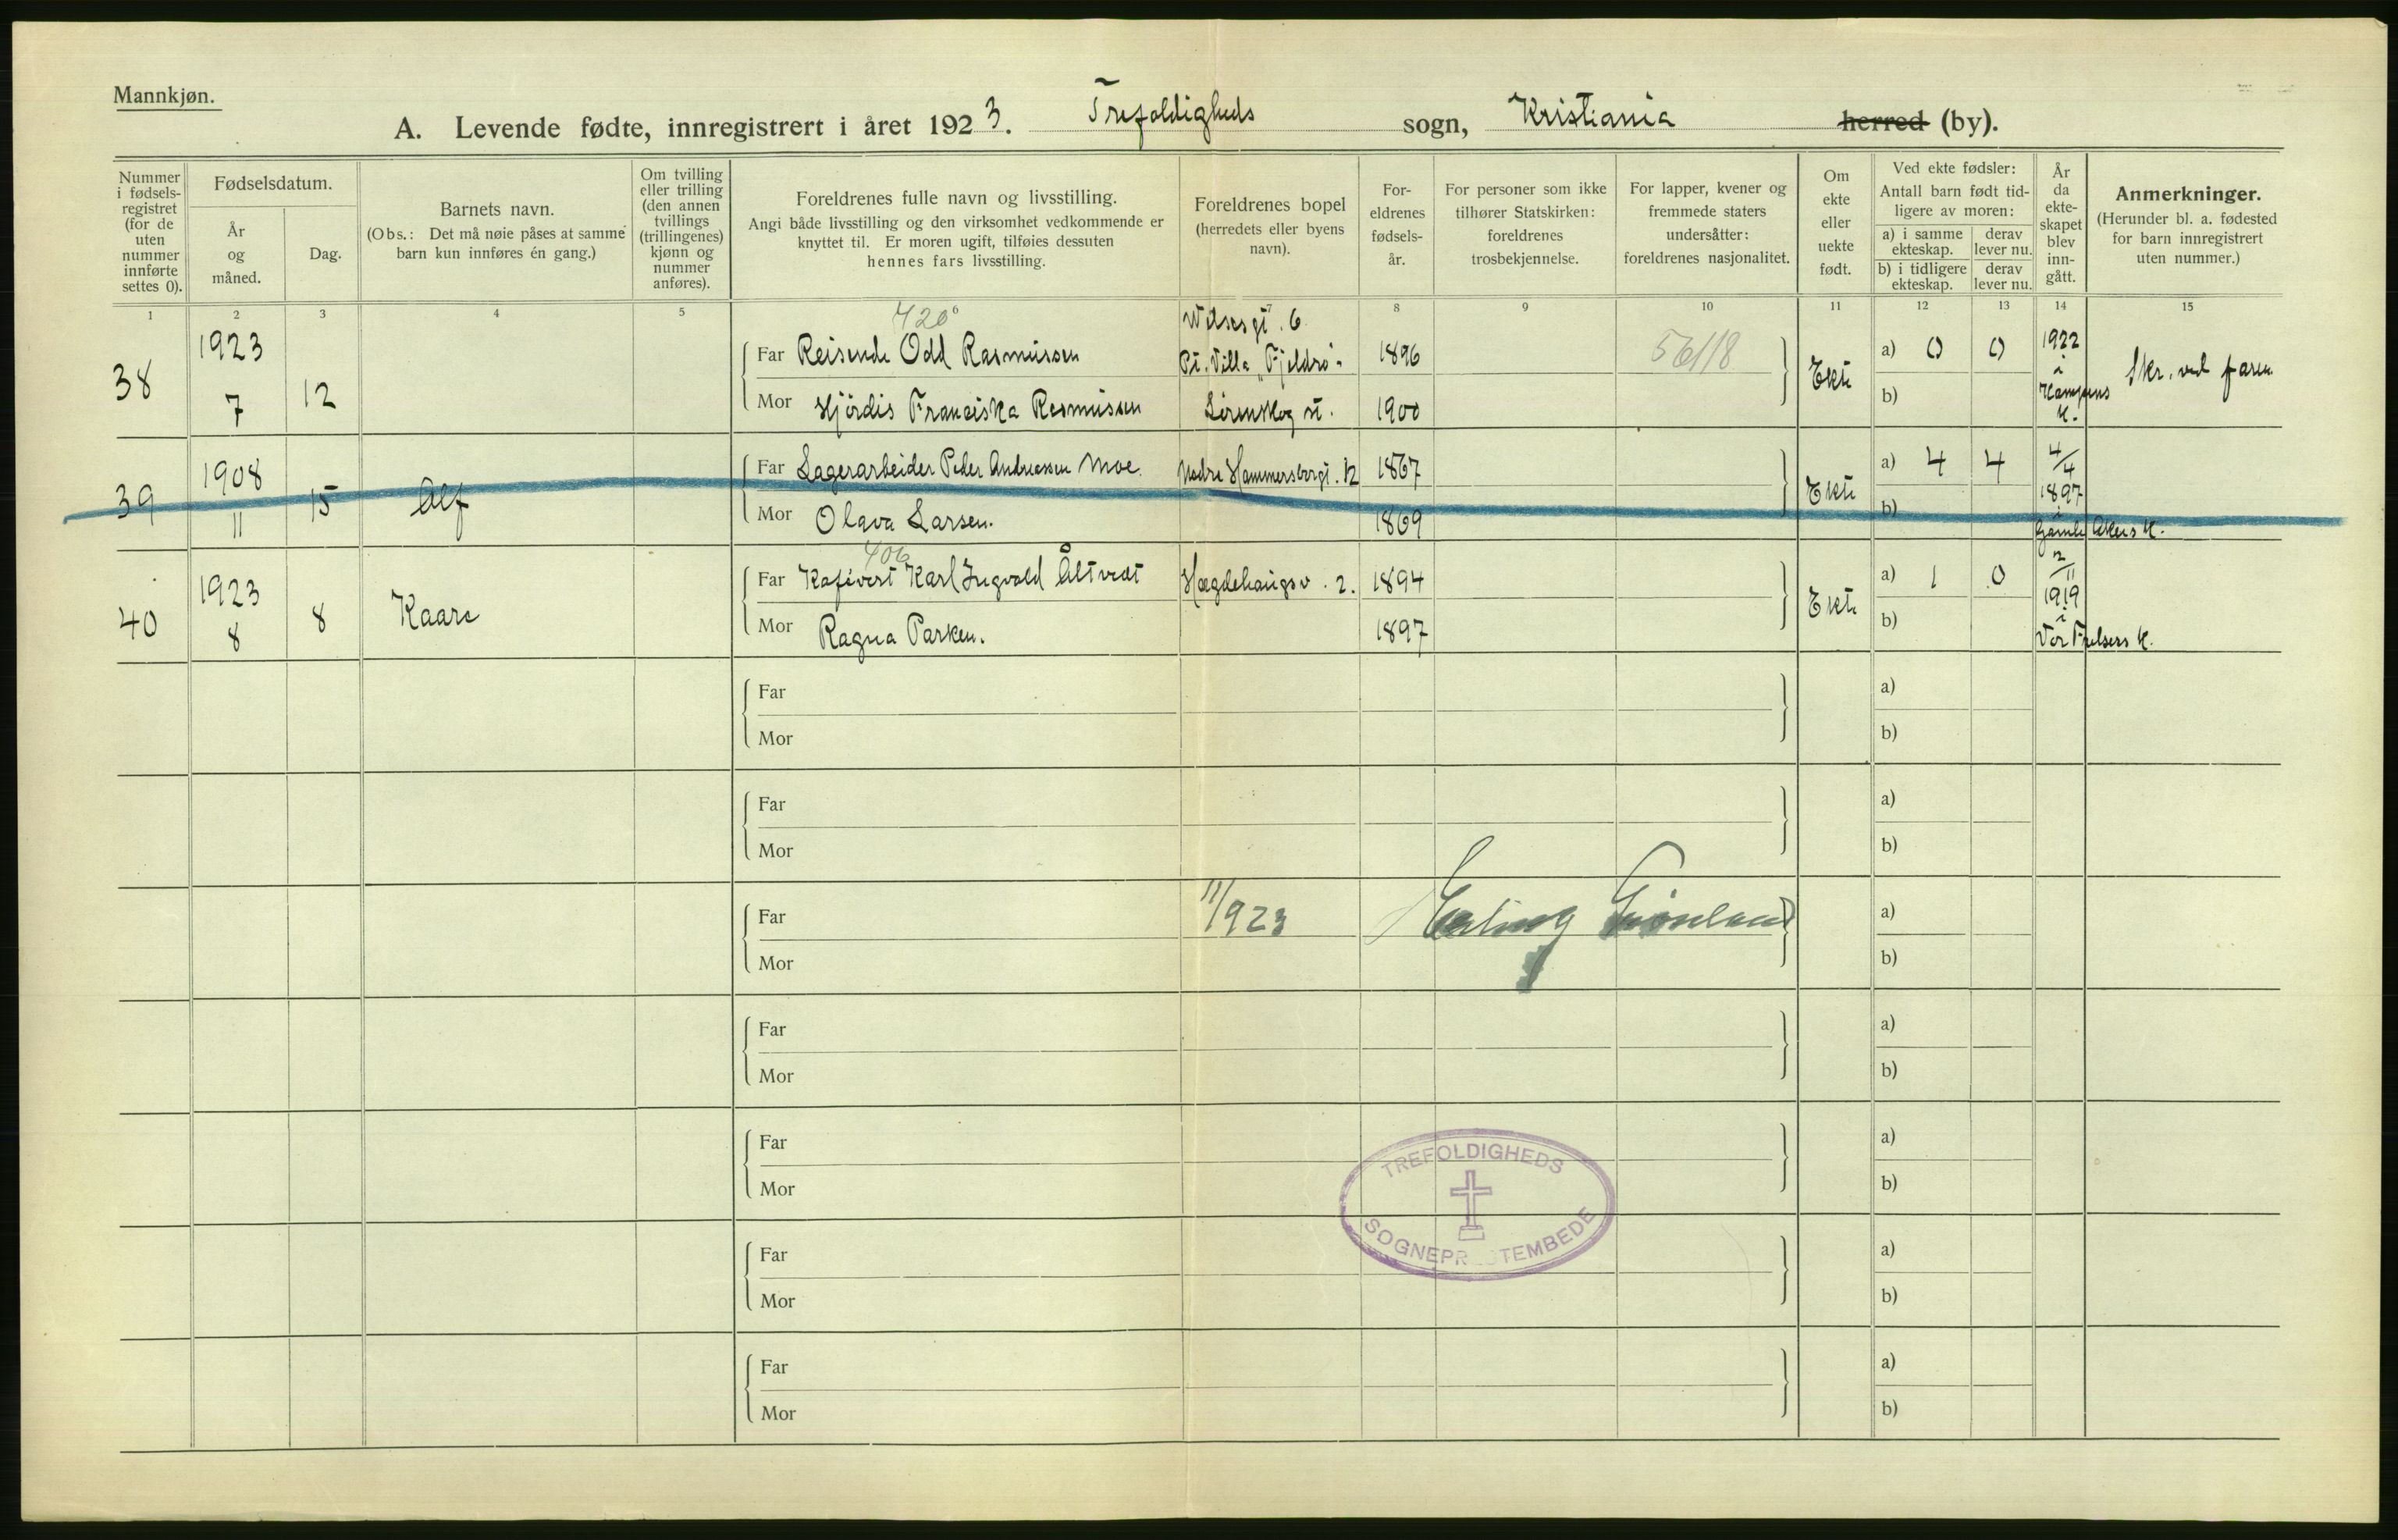 Mannkjøn.
A. Levende fødte, innregistrert i året 1923. Trefoldigheds sogn, Kristiania herred (by).
Nummer i fødselsregistret (for de uten nummer innførte settes 0).
Fødselsdatum.
År og måned.
Dag.
Barnets navn.
(Obs.: Det må nøie påses at samme barn kun innføres én gang.)
Om tvilling eller trilling (den annen tvillings (trillingenes) kjønn og nummer anføres).
Foreldrenes fulle navn og livsstilling.
Angi både livsstilling og den virksomhet vedkommende er knyttet til. Er moren ugift, tilføies dessuten hennes fars livsstilling.
Foreldrenes bopel (herredets eller byens navn).
Foreldrenes fødselsår.
For personer som ikke tilhører Statskirken: foreldrenes trosbekjennelse.
For lapper, kvener og fremmede staters undersåtter: foreldrenes nasjonalitet.
Om ekte eller uekte født.
Ved ekte fødsler:
Antall barn født tidligere av moren:
a) i samme ekteskap. derav lever nu.
b) i tidligere ekteskap. derav lever nu.
År da ekteskapet blev inngått.
Anmerkninger.
(Herunder bl. a. fødested for barn innregistrert uten nummer.)
1 2 3 4 5 8 9 10 11 12 13 14 15
38 1923 7 12
420
Far Reisende Odd Rasmussen
Mor Hjördis Franciska Rasmussen
Wilsesgt. 6
Pt. Villa „Fjeldro"
Lörenskog st.
1896
1900
56118
Ekte
a) 0 0
b)
1922 i Kampens K.
Skr. ved faren
39 1908 11 15 Alf
Far Lagerarbeider Peder Andreassen Moe.
Mor Olava Larsen.
Nedre Hammersborggt. 12
1867
1869
Ekte
a) 4 4
b)
4/4 1897 i Gamle Akers K.
40 1923 8 8 Kaare
406
Far Kafévert Karl Ingvald Åltvedt
Mor Ragna Parken.
Hægdehaugsv. 2.
1894
1897
Ekte
a) 1 0
b)
2/11 1919 i Vor Frelsers K.
Far
Mor
a)
b)
Far
Mor
a)
b)
Far
Mor
11/923 Erling Grönland
a)
b)
Far
Mor
a)
b)
Far
Mor
a)
b)
TREFOLDIGHEDS
SOGNEPR TEMBEDE
Far
Mor
a)
b)
Far
Mor
a)
b)